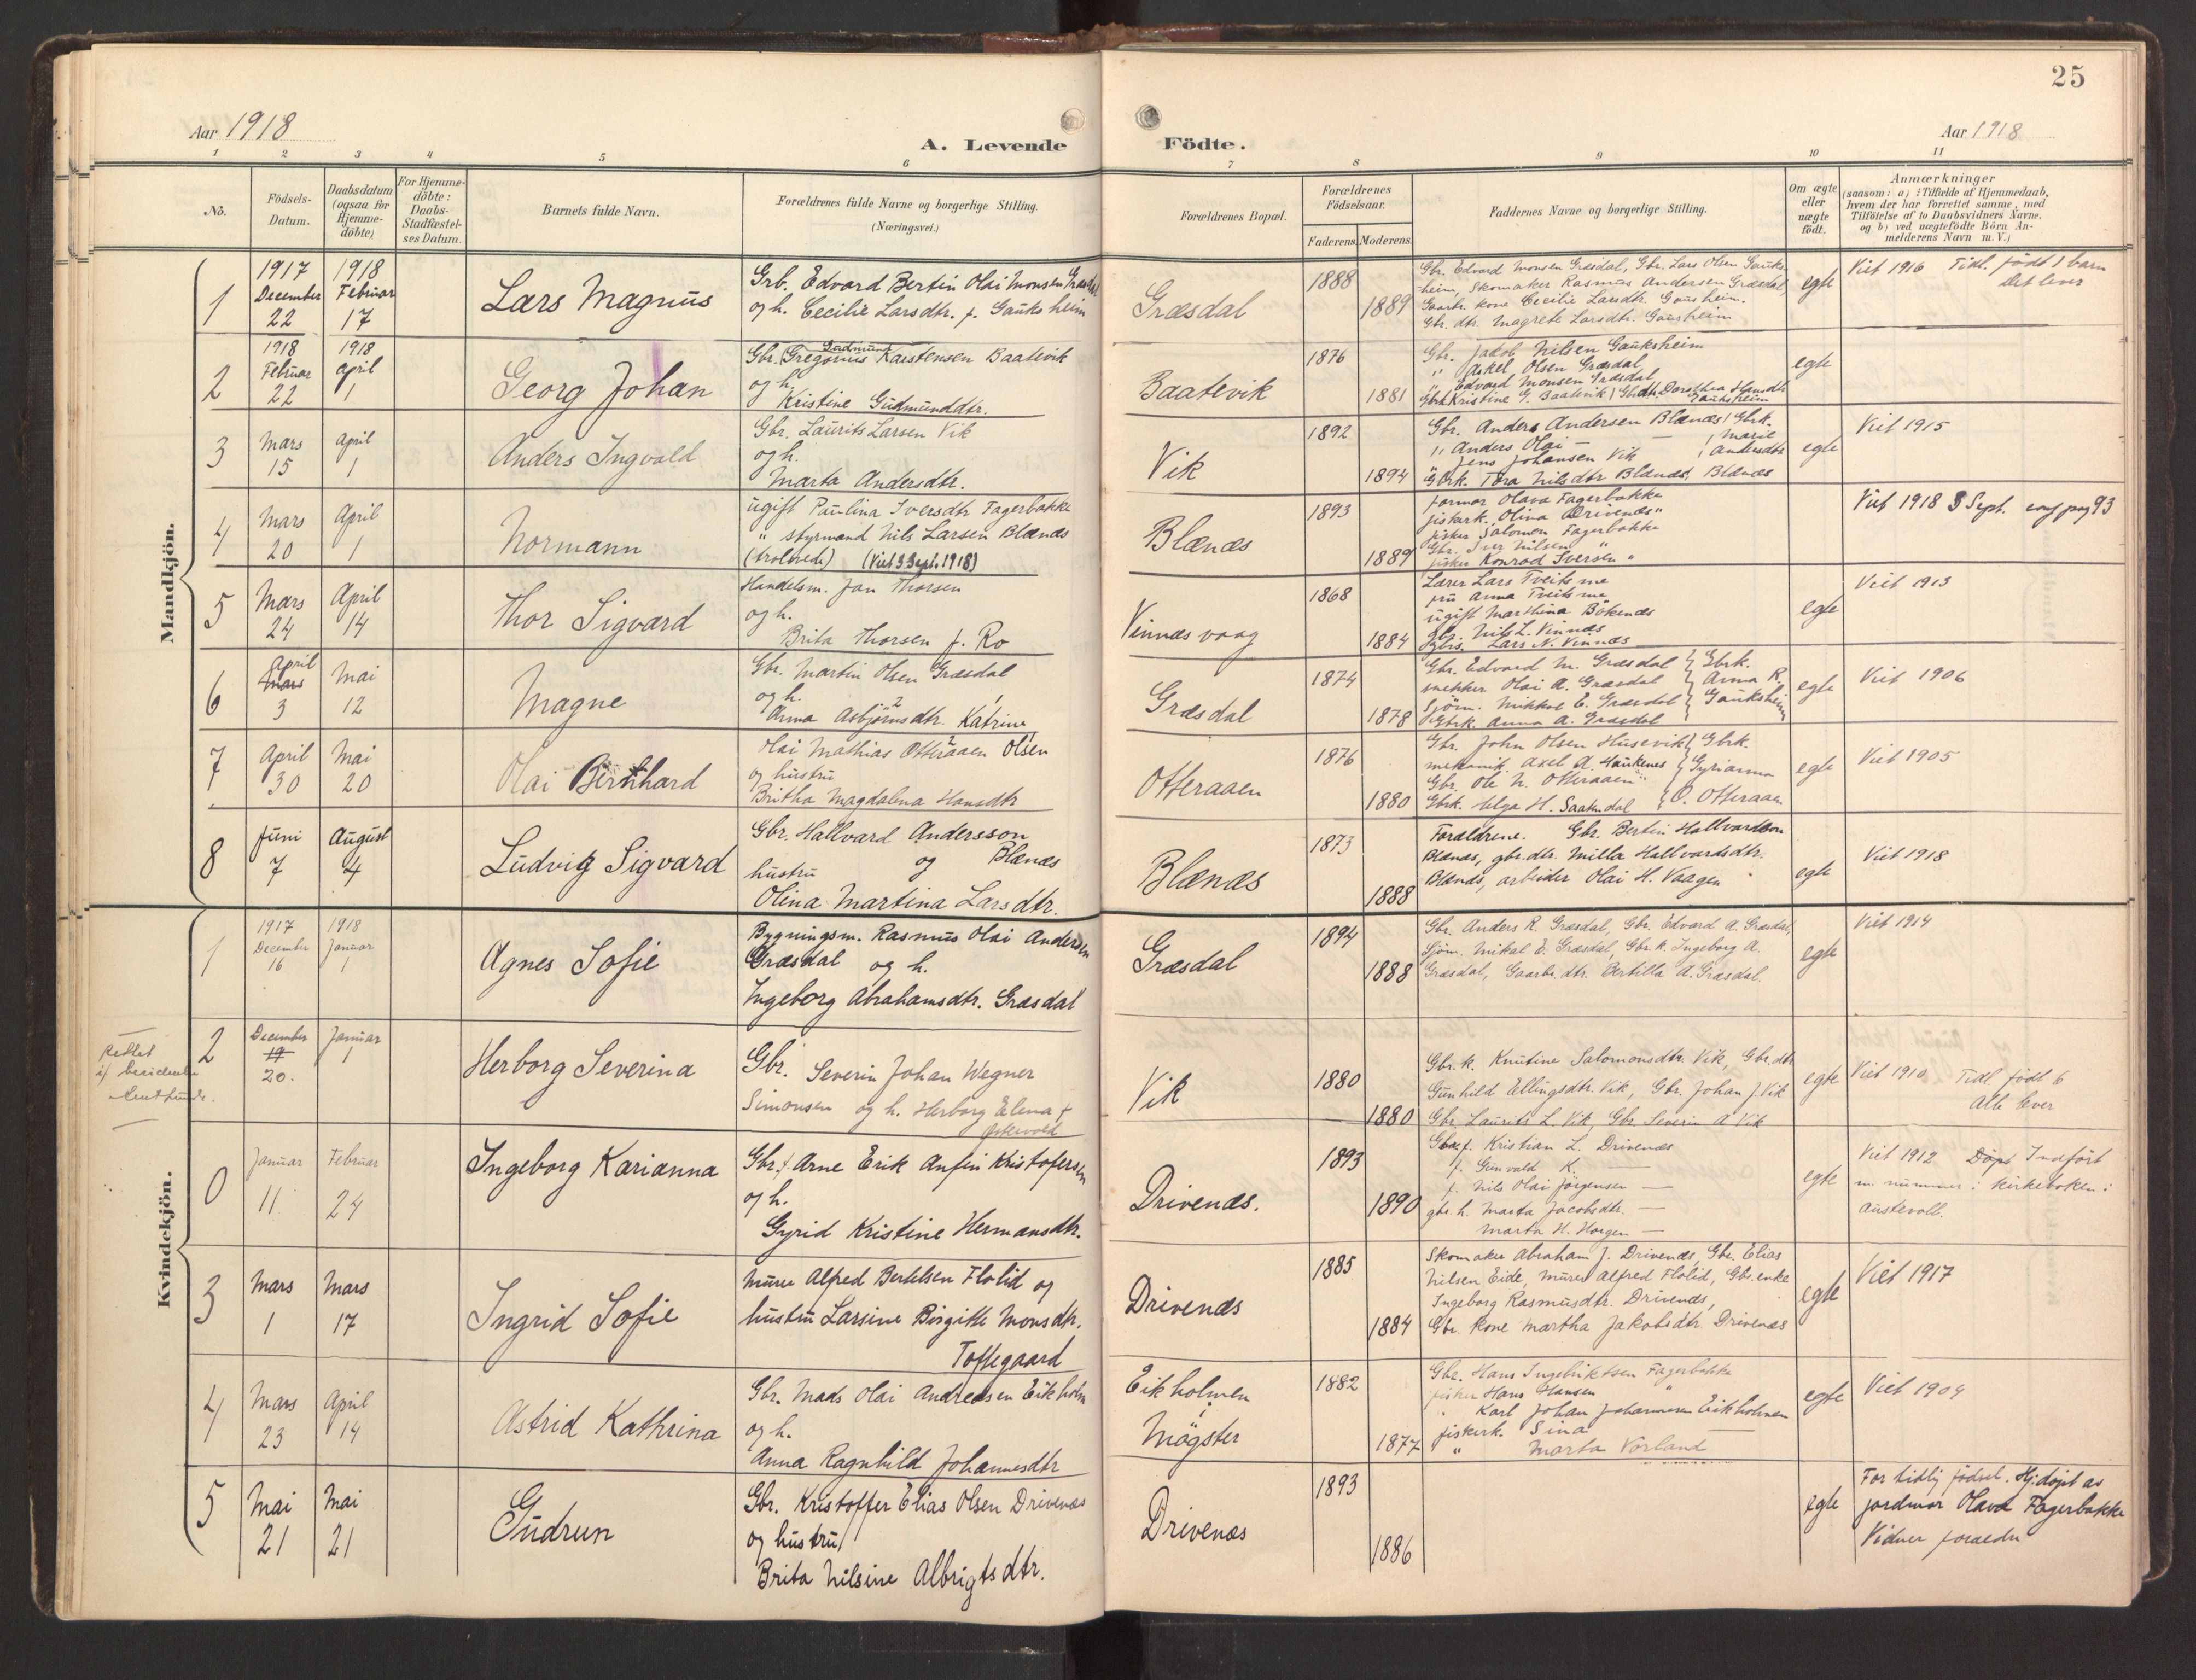 25
Aar 1918
A. Levende Födte.
Aar 1918
1 2 3 4 5 6 7 8 9 10 11
No.
Födsels-Datum.
Daabsdatum (ogsaa for Hjemme-döbte)
For Hjemme-döbte: Daabs-Stadfæstel-ses Datum.
Barnets fulde Navn.
Forældrenes fulde Navne og borgerlige Stilling.
(Næringsvei.)
Forældrenes Bopæl.
Forældrenes Födselsaar.
Faderens. Moderens.
Faddernes Navne og borgerlige Stilling.
Om ægte eller uægte födt.
Anmærkninger
(saasom: a) i Tilfælde af Hjemmedaab,
hvem der har forrettet samme, med
Tilföielse af to Daabsvidners Navne.
og b) ved uægtefödte Börn An-
melderens Navn m. V.)
Mandkjön.
1
1917 December 22
1918 Februar 17
Lars Magnus
Grb. Edvard Bertin Olai Monsen Græsdal
og h. Cecilie Larsdtr. f. Gauksheim
Græsdal
1888
1889
Gbr. Edvard Monsen Græsdal, Gbr. Lars Olsen Gauks-
heim, Skomaker Rasmus Andersen Græsdal,
Gaardbr. kone Cecilie Larsdtr. Gausheim.
Gbr. dtr. Magrete Larsdtr. Gausheim
egte
Viet 1916 Tidl. födt 1 barn
Det lever
2
1918 Februar 22
1918 April 1
Georg Johan
Gudmund
Gbr. Gregorius Karstensen Baatevik
og h.
Kristine Gudmunddtr.
Baatevik
1876
1881
Gbr. Jakob Nilsen Gauksheim
" Askel Olsen Græsdal
" Edvard Monsen Græsdal
Gbrk Kristine G. Baatevik / Gbdtr. Dorothea Hansdtr
Gauksheim
egte
3
Mars 15
April 1
Anders Ingvald
Gbr. Laurits Larsen Vik
og h.
Marta Andersdtr.
Vik
1892
1894
Gbr. Anders Andersen Blænæs / Gbrk.
" Anders Olai — / Marie
" Jens Johansen Vik / Andersdtr
Gbrk. Tora Nilsdtr Blænæs, Blænæs
egte
Viet 1915
4
Mars 20
April 1
Normann
ugift Paulina Iversdtr Fagerbakke
" styrmand Nils Larsen Blænæs
(trolovede) (Viet 3 Sept. 1918)
Blænæs
1893
1889
jormor Olava Fagerbakke
fiskerk. Olina Drivenæs "
fisker Salomon Fagerbakke
Gbr. Iver Nilsen "
fisker Konrad Iversen "
Viet 1918 3 Sept. pag 93
5
Mars 24
April 14
Thor Sigvard
Handelsm. Jan Thorsen
og h.
Brita Thorsen f. Ro
Vinnæs vaag
1868
1884
Lærer Lars Tveitsme
fru Anna Tveitsme
ugift Marthina Bökenæs
gbr. Nils L. Vinnæs
gbrs. Lars N. Vinnæs
egte
Viet 1913
6
April Mars 3
Mai 12
Magne
Gbr. Martin Olsen Græsdal
og h. 2 1
Anna Asbjörnsdtr. Katrine
Græsdal
1874
1878
Gbr. Edvard M. Græsdal } Gbrk.
snekker Olai A. Græsdal } Anna R.
Sjöm. Mikkal E. Græsdal } Gauksheim
Gbrk. Anna A. Græsdal
egte
Viet 1906
7
April 30
Mai 20
Olai Bernhard
Olai Mathias Otteraaen Olsen
og hustru
Britha Magdalena Hansdtr
Otteraaen
1876
1880
Gbr. John Olsen Husevik { Gbrk.
mekanik. Axel A. Haukenes { Gyrianna
Gbr. Ole N. Otteraaen
Gbrk. Olga H. Saatendal { O. Otteraaen
egte
Viet 1905
8
Juni 7
August 4
Ludvig Sigvard
Gbr. Hallvard Andersson
hustru og Blænæs
Olina Martina Larsdtr.
Blænæs
1873
1888
Forældrene. Gbr. Bertin Hallvardson
Blænæs, gbr. dtr. Milla Hallvardsdtr.
Blænæs, arbeider Olai H. Vaagen
egte
Viet 1918
Kvindekjön.
1
1917 December 16
1918 Januar 1
Agnes Sofie
Bygningsm. Rasmus Olai Andersen
Græsdal og h.
Ingeborg Abrahamsdtr. Græsdal
Græsdal
1894
1888
Gbr. Anders R. Græsdal, Gbr. Edvard A. Græsdal,
Sjöm. Mikal E. Græsdal, Gbr. k. Ingeborg A.
Græsdal, Gaardbr. dtr. Bertilla A. Græsdal.
egte
Viet 1914
Rettet
2
December 19 20.
Januar 1
Herborg Severina
Gbr. Severin Johan Wegner
Simonsen og h. Herborg Elena f.
Vik
1880
1880
Gbr. k. Knutine Salomonsdtr Vik, Gbr. dtr.
Gunhild Ellingsdtr. Vik, Gbr. Johan J. Vik
Gbr. Laurits L. Vik, Gbr. Severin A Vik
egte
Viet 1910 Tidl födt 6
Alle lever
0
Januar 11
Februar 24
Ingeborg Karianna
Gbr. f. Arne Erik Anfin Kristofersen
og h.
Gyrid Kristine Hermansdtr.
Drivenæs.
1893
1890
Gbr. f. Kristian L. Drivenæs
f. Gunvald K. —
f. Nils Olai Jörgensen —
gbr. h. Marta Jacobsdtr. —
Marta H. Horgen —
egte
Viet 1912 Döpt Indfört
m. nummer i kirkeboken i
Austevoll.
3
Mars 1
Mars 17
Ingrid Sofie
Murer Alfred Bertelsen Flolid og
hustru Larsine Birgitte Monsdtr.
Toftegaard
Drivenæs
1885
1884
Skomaker Abraham J. Drivenæs, Gbr. Elias
Nilsen Eide, Murer Alfred Flolid, Gbr. enke
Ingeborg Rasmusdtr. Drivenæs,
Gbr. kone Martha Jakobsdtr. Drivenæs
egte
Viet 1917
4
Mars 23
April 14
Astrid Kathrina
Gbr. Mads Olai Andreasen Eikholm
og h.
Anna Ragnhild Johannesdtr
Eikholmen
i
Mögster
1882
1877
Gbr. Hans Ingebriktsen Fagerbakke
fisker Hans Hansen "
" Karl Johan Johannesen Eikholmen
fiskerk. Sina —
" Marta Vorland
egte
Viet 1904
5
Mai 21
Mai 21
Gudrun
Gbr. Kristoffer Elias Olsen Drivenæs
og hustru
Brita Nilsine Albrigtsdtr.
Drivenæs
1893
1886
egte
For tidlig födsel. Hj. döpt av
jordmor Olava Fagerbakke
Vidner foreldre